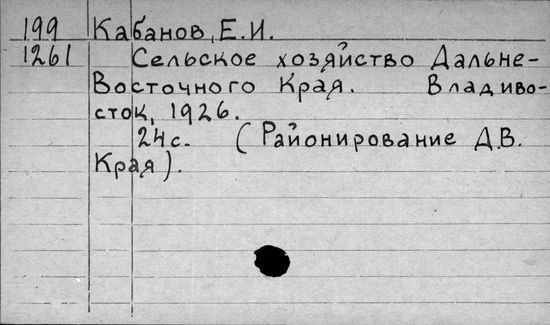 199 Кабанов, Е.И.
1261 Сельское хозяйство Дальне-
Восточного Края. Владиво-
сток, 1926.
24с. (Районирование Д.В.
Края).